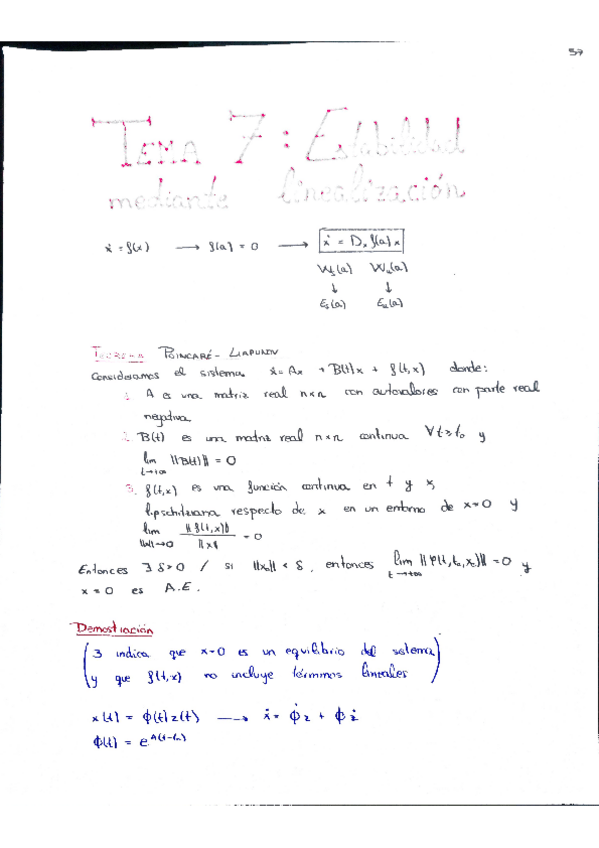 57
Tema 7: Estabilidad
mediante linealización
ẋ = f(x) → f(a) = 0 → ẋ = Dₓf(a)x
Ws(a) Wu(a)
↓ ↓
Es(a) Eu(a)
Teorema Poincaré - Liapunov
Consideramos el sistema ẋ = Ax + B(t)x + f(t,x) donde:
1. A es una matriz real n×n con autovalores con parte real
negativa.
2. B(t) es una matriz real n×n continua ∀t≥t₀ y
lim ||B(t)|| = 0
t→+∞
3. f(t,x) es una función continua en t y x,
lipschitziana respecto de x en un entorno de x=0 y
lim ||f(t,x)|| / ||x|| = 0
||x||→0
Entonces ∃ δ>0 / si ||x₀|| < δ, entonces lim ||φ(t,t₀,x₀)|| = 0 y
t→+∞
x = 0 es A.E.
Demostración
(3 indica que x=0 es un equilibrio del sistema
y que f(t,x) no incluye términos lineales)
x(t) = ϕ(t)z(t) → ẋ = ϕ̇z + ϕż
ϕ(t) = e^A(t-t₀)